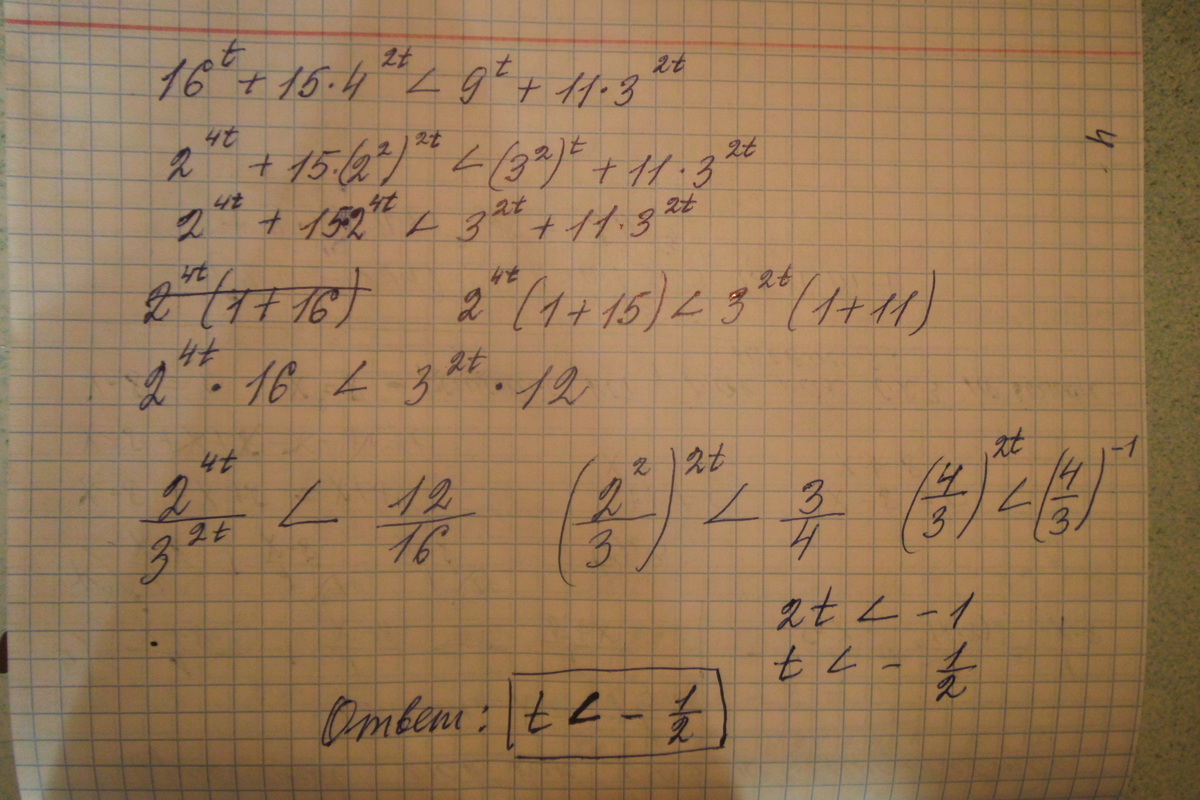 16^t + 15·4^2t < 9^t + 11·3^2t
2^4t + 15·(2^2)^2t < (3^2)^t + 11·3^2t
2^4t + 15·2^4t < 3^2t + 11·3^2t
2^4t (1+16) 2^4t (1+15) < 3^2t (1+11)
2^4t · 16 < 3^2t · 12
2^4t/3^2t < 12/16 (2^2/3)^2t < 3/4 (4/3)^2t < (4/3)^-1
2t < -1
t < - 1/2
Ответ: t < - 1/2